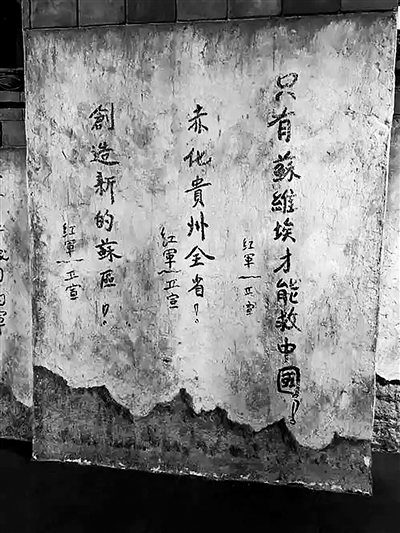 只有蘇維埃才能救中國！
紅軍 亚宣
赤化貴州全省！
紅軍 亚宣
創造新的蘇區！
紅軍 亚宣